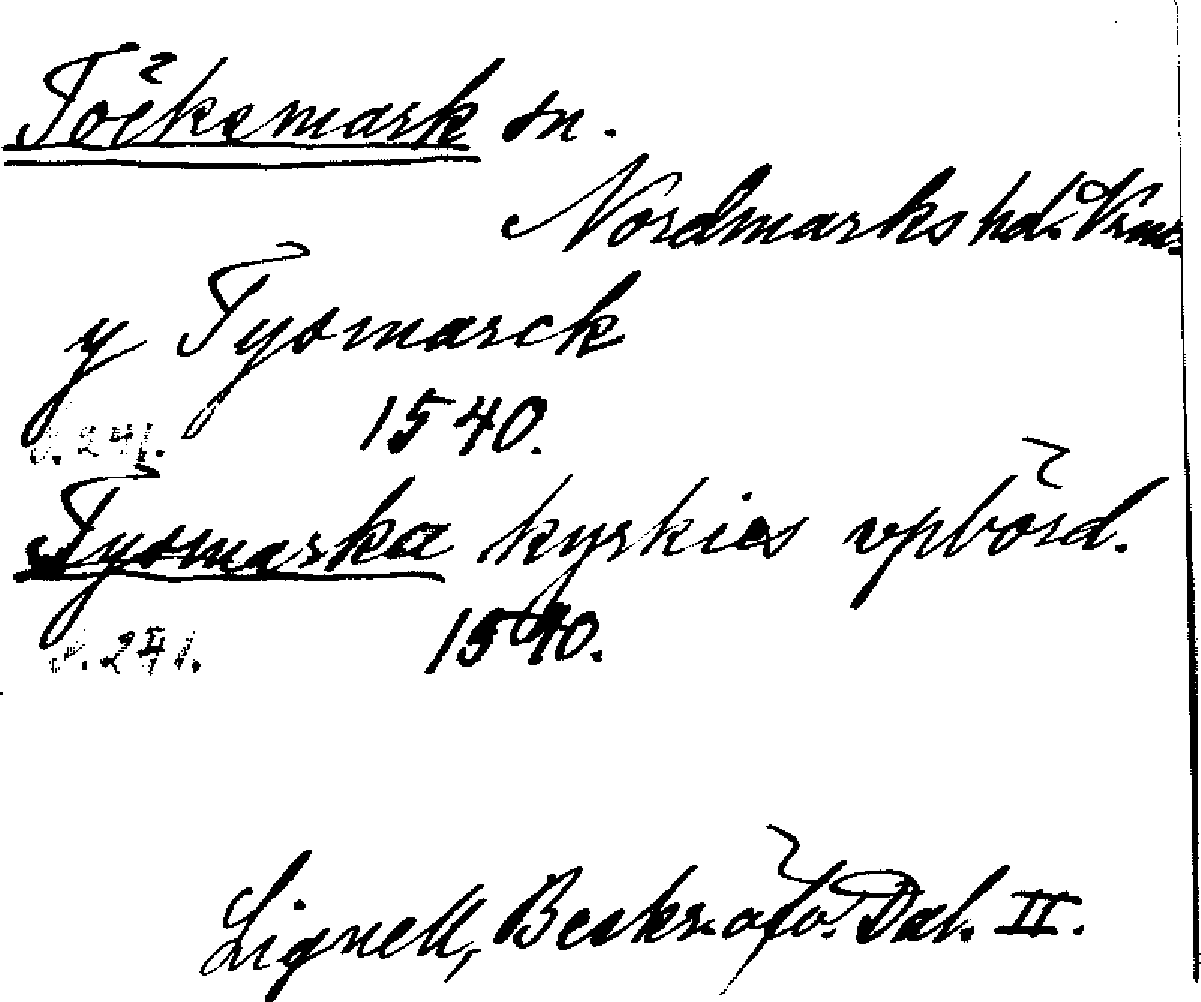 Töcksmark sn.
Nordmarks hd. Vrml.
y Tysmarck
s. 241. 1540.
Tysmarka kyrkies vpbörd.
s. 241. 1540.
Lignell, Beskr. öfv. Dal. II.